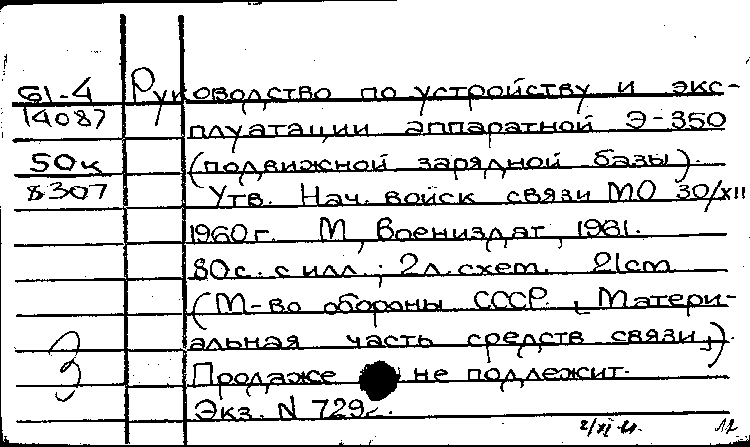 61-4 Руководство по устройству и экс-
14087 плуатации аппаратной Э-350
50к (подвижной зарядной базы).
8307 Утв. Нач. войск связи МО 30/XII
1960 г. М, Воениздат, 1961.
80 с. с илл.; 2 л. схем. 21 cm
(М-во обороны СССР. Матери-
альная часть средств связи,)
3 Продаже не подлежит.
Экз. N 729
2/XI-61. 12